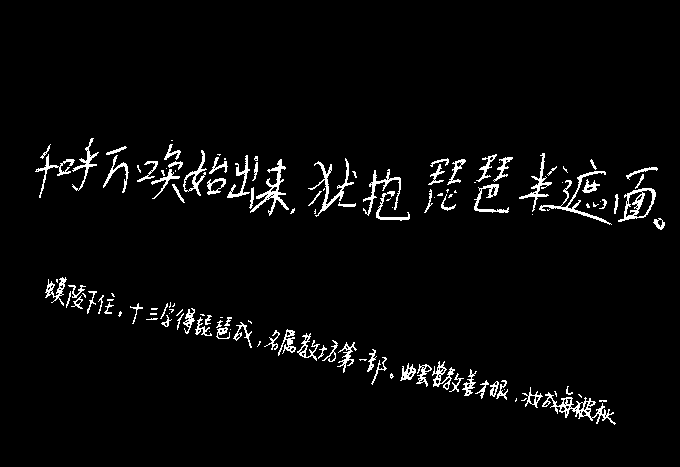 千呼万唤始出来,犹抱琵琶半遮面。
蟆陵下住。十三学得琵琶成,名属教坊第一部。曲罢曾教善才服,妆成每被秋